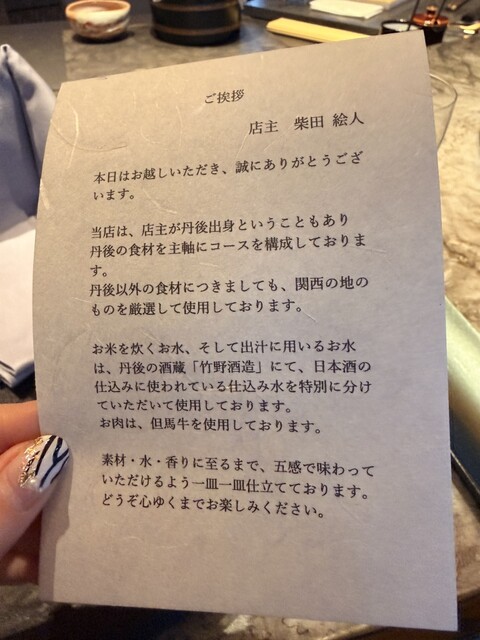 ご挨拶
店主　柴田 絵人
本日はお越しいただき、誠にありがとうござ
います。
当店は、店主が丹後出身ということもあり
丹後の食材を主軸にコースを構成しておりま
す。
丹後以外の食材につきましても、関西の地の
ものを厳選して使用しております。
お米を炊くお水、そして出汁に用いるお水
は、丹後の酒蔵「竹野酒造」にて、日本酒の
仕込みに使われている仕込み水を特別に分け
ていただいて使用しております。
お肉は、但馬牛を使用しております。
素材・水・香りに至るまで、五感で味わって
いただけるよう一皿一皿仕立てております。
どうぞ心ゆくまでお楽しみください。